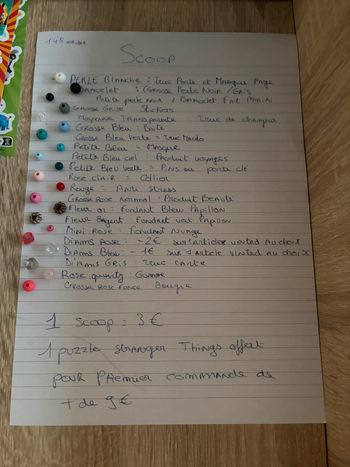 Scoop
PERLE Blanche : Truc Porte et Marque Page
Bracelet : Grosse Perle Noir / Gris
Petite perle noir / Bracelet Fait MAIN
Grosse Grise : Stickers
Moyenne Transparente Truc de cheveux
Grosse Bleu : Boite
Grosse Bleu Verte = Truc
Petite Bleu = Masque
Petite Bleu ciel : Produit voyages
Petite Bleu Verte = Pins ou porte clé
Rose clair = Collier
Rouge = Anti stress
Grosse Rose normal : Produit Beauté
Fleur or : Fondant Bleu Papillon
Fleur Argent Fondant vert Papillon
Mini Rose : Fondant Nuage
Diams Rose : -2€ sur 1 articles vinted au choix
Diams Bleu : -1€ sur 1 article vinted au choix
Diams Gris : Truc carte
Rose quartz : Gomme
Grosse Rose Foncé Bougie
1 Scoop : 3€
1 puzzle Stranger Things offert
pour Premier commande de
+ de 9€